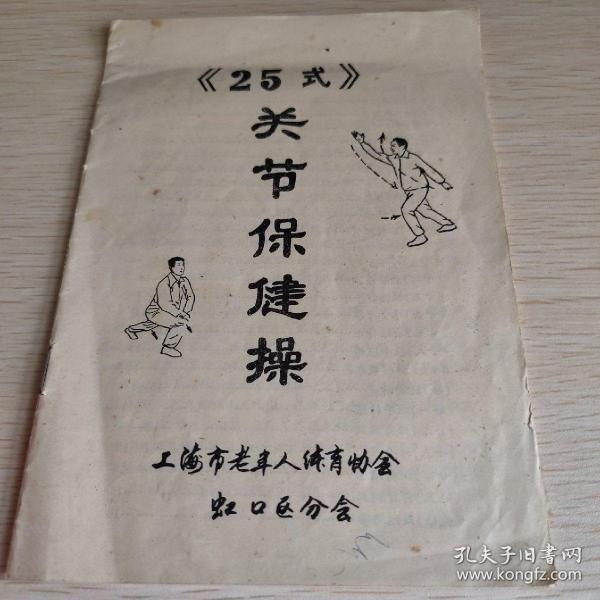 《25式》
关节保健操
上海市老年人体育协会
虹口区分会
孔夫子旧书网
www.kongfz.com